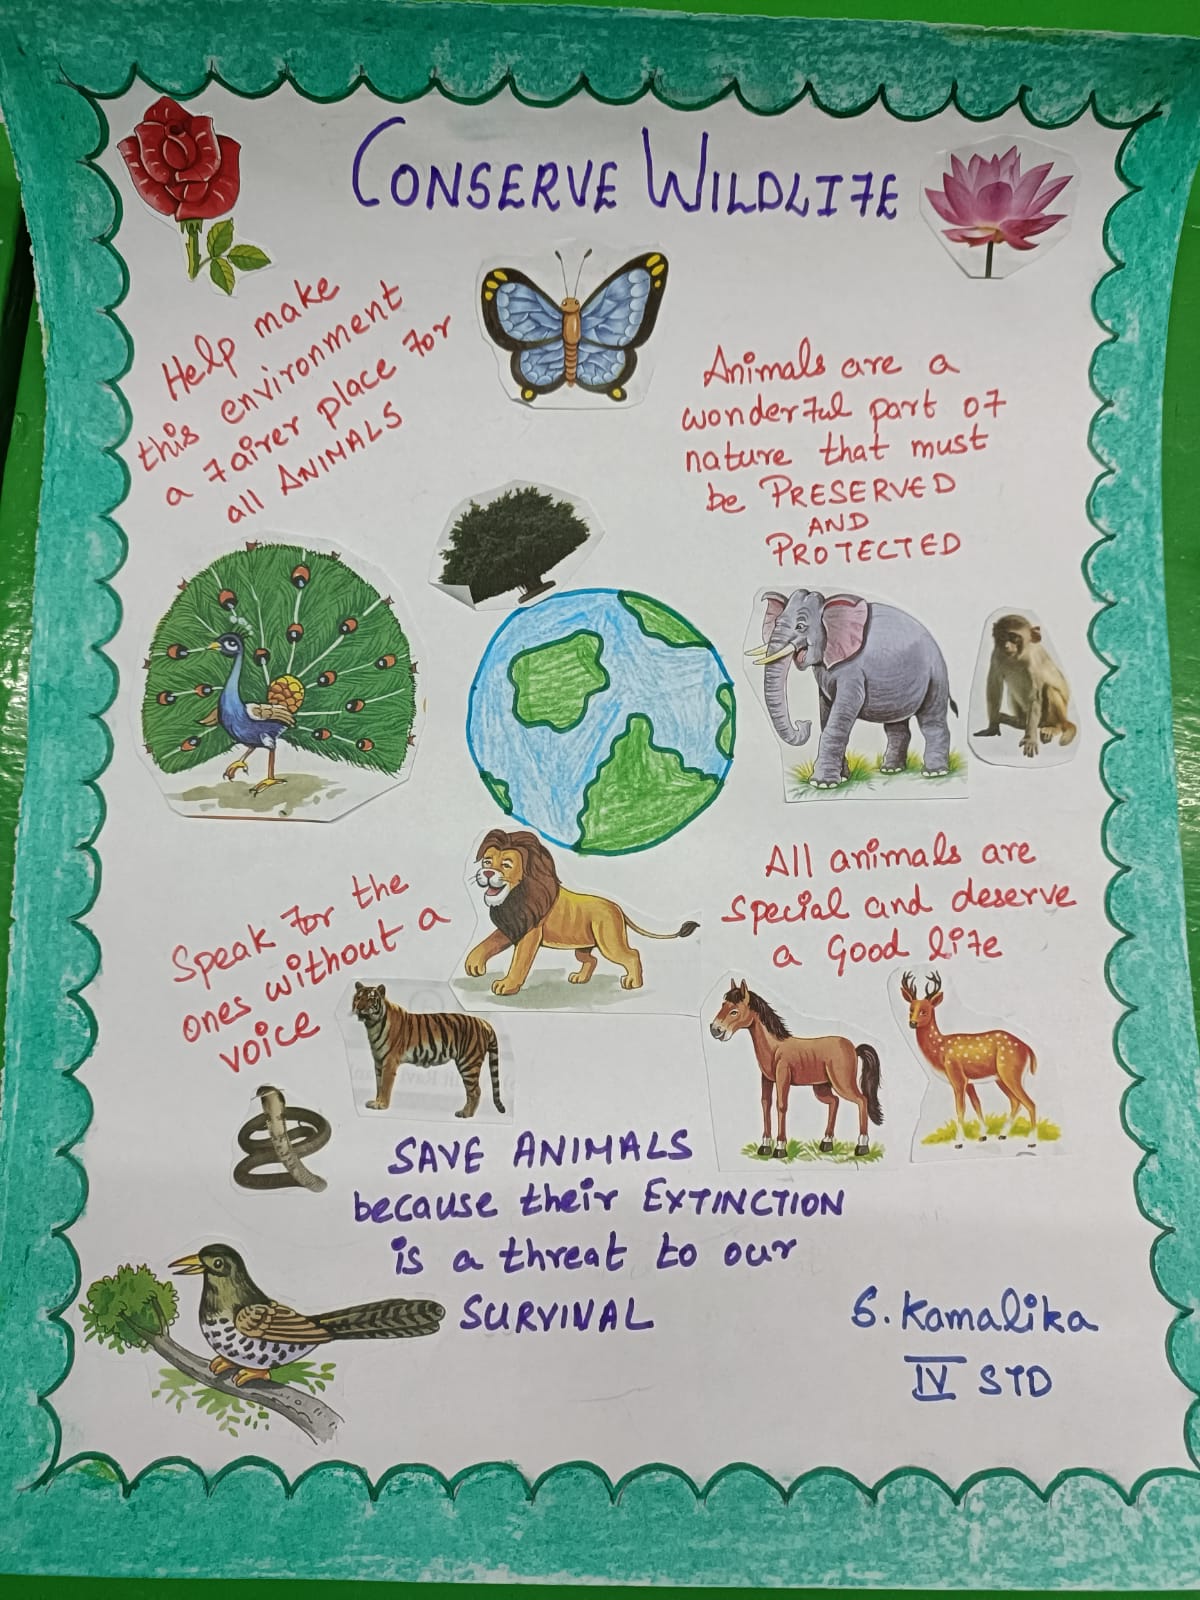 CONSERVE WILDLIFE
Help make
this environment
a fairer place for
all ANIMALS
Animals are a
wonderful part of
nature that must
be PRESERVED
AND
PROTECTED
Speak for the
ones without a
voice
All animals are
special and deserve
a Good life
SAVE ANIMALS
because their EXTINCTION
is a threat to our
SURVIVAL
S. Kamalika
IV STD